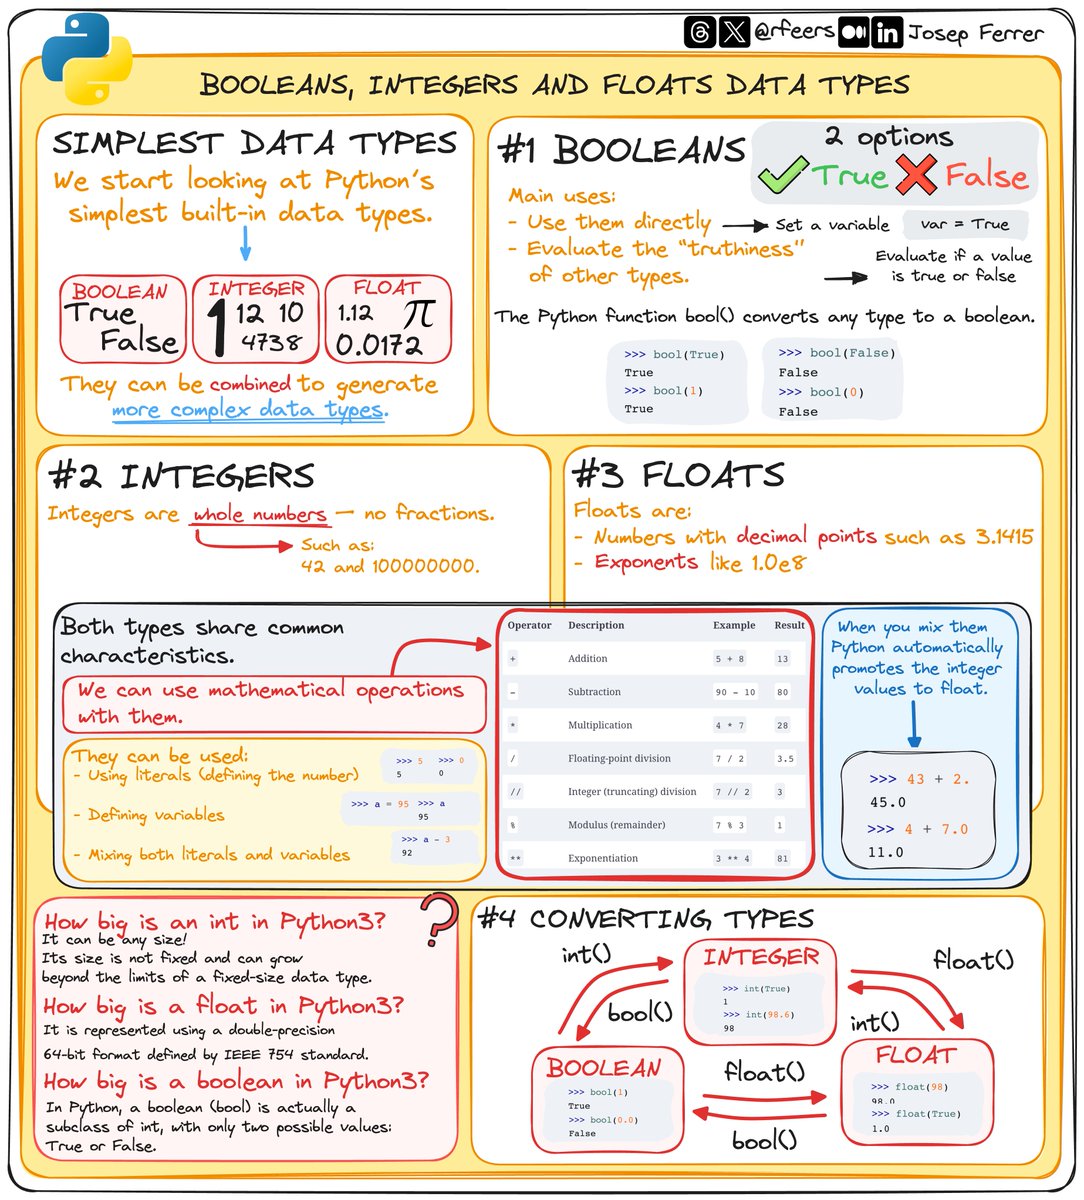 @rfeers
Josep Ferrer
BOOLEANS, INTEGERS AND FLOATS DATA TYPES
SIMPLEST DATA TYPES
We start looking at Python's
simplest built-in data types.
BOOLEAN
True
False
INTEGER
1 12 10
4738
FLOAT
1.12 π
0.0172
They can be combined to generate
more complex data types.
#1 BOOLEANS
2 options
True False
Main uses:
- Use them directly
Set a variable
var = True
- Evaluate the "truthiness"
of other types.
Evaluate if a value
is true or false
The Python function bool() converts any type to a boolean.
>>> bool(True)
True
>>> bool(1)
True
>>> bool(False)
False
>>> bool(0)
False
#2 INTEGERS
Integers are whole numbers — no fractions.
Such as:
42 and 100000000.
#3 FLOATS
Floats are:
- Numbers with decimal points such as 3.1415
- Exponents like 1.0e8
Both types share common
characteristics.
We can use mathematical operations
with them.
They can be used:
- Using literals (defining the number)
>>> 5 >>> 0
5 0
- Defining variables
>>> a = 95 >>> a
95
- Mixing both literals and variables
>>> a - 3
92
Operator Description Example Result
+ Addition 5 + 8 13
- Subtraction 90 - 10 80
* Multiplication 4 * 7 28
/ Floating-point division 7 / 2 3.5
// Integer (truncating) division 7 // 2 3
% Modulus (remainder) 7 % 3 1
** Exponentiation 3 ** 4 81
When you mix them
Python automatically
promotes the integer
values to float.
>>> 43 + 2.
45.0
>>> 4 + 7.0
11.0
How big is an int in Python3?
It can be any size!
Its size is not fixed and can grow
beyond the limits of a fixed-size data type.
How big is a float in Python3?
It is represented using a double-precision
64-bit format defined by IEEE 754 standard.
How big is a boolean in Python3?
In Python, a boolean (bool) is actually a
subclass of int, with only two possible values:
True or False.
?
#4 CONVERTING TYPES
int()
bool()
INTEGER
>>> int(True)
1
>>> int(98.6)
98
float()
int()
BOOLEAN
>>> bool(1)
True
>>> bool(0.0)
False
float()
bool()
FLOAT
>>> float(98)
98.0
>>> float(True)
1.0